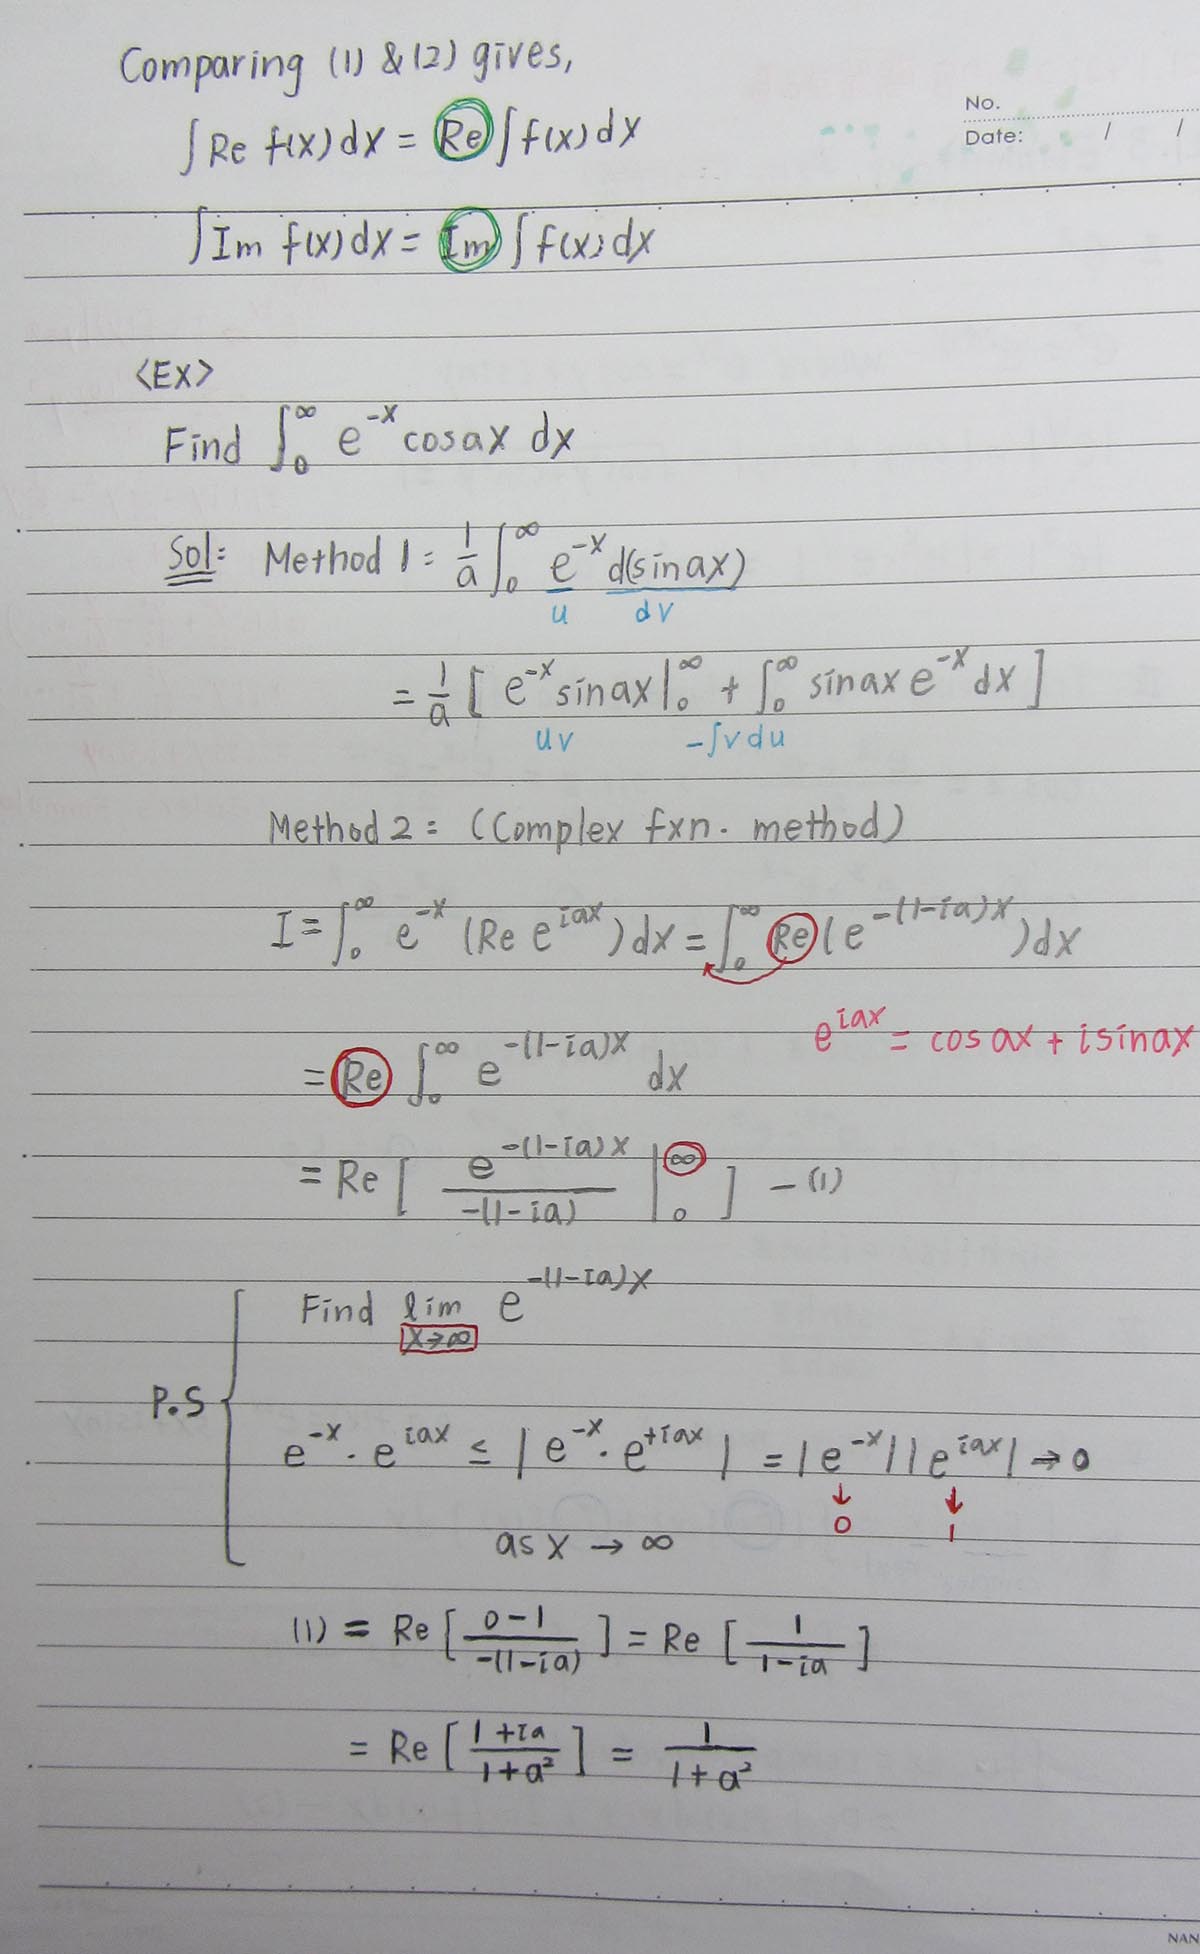 Comparing (1) & (2) gives,
No.
Date: / /
∫ Re f(x) dx = Re ∫ f(x) dx
∫ Im f(x) dx = Im ∫ f(x) dx
<Ex>
Find ∫₀^∞ e^{-x} cos ax dx
Sol: Method 1: 1/a ∫₀^∞ e^{-x} d(sin ax)
u dv
= 1/a [ e^{-x} sin ax |₀^∞ + ∫₀^∞ sin ax e^{-x} dx ]
uv -∫v du
Method 2: (Complex fxn. method)
I = ∫₀^∞ e^{-x} (Re e^{iax}) dx = ∫₀^∞ Re (e^{-(1-ia)x}) dx
e^{iax} = cos ax + i sin ax
= Re ∫₀^∞ e^{-(1-ia)x} dx
= Re [ e^{-(1-ia)x} / -(1-ia) |₀^∞ ] - (1)
Find lim x→∞ e^{-(1-ia)x}
P.S
e^{-x} · e^{iax} ≤ | e^{-x} · e^{+iax} | = |e^{-x}| |e^{iax}| → 0
↓ ↓
0 1
as x → ∞
(1) = Re [ 0-1 / -(1-ia) ] = Re [ 1 / 1-ia ]
= Re [ 1+ia / 1+a² ] = 1 / 1+a²
NAN